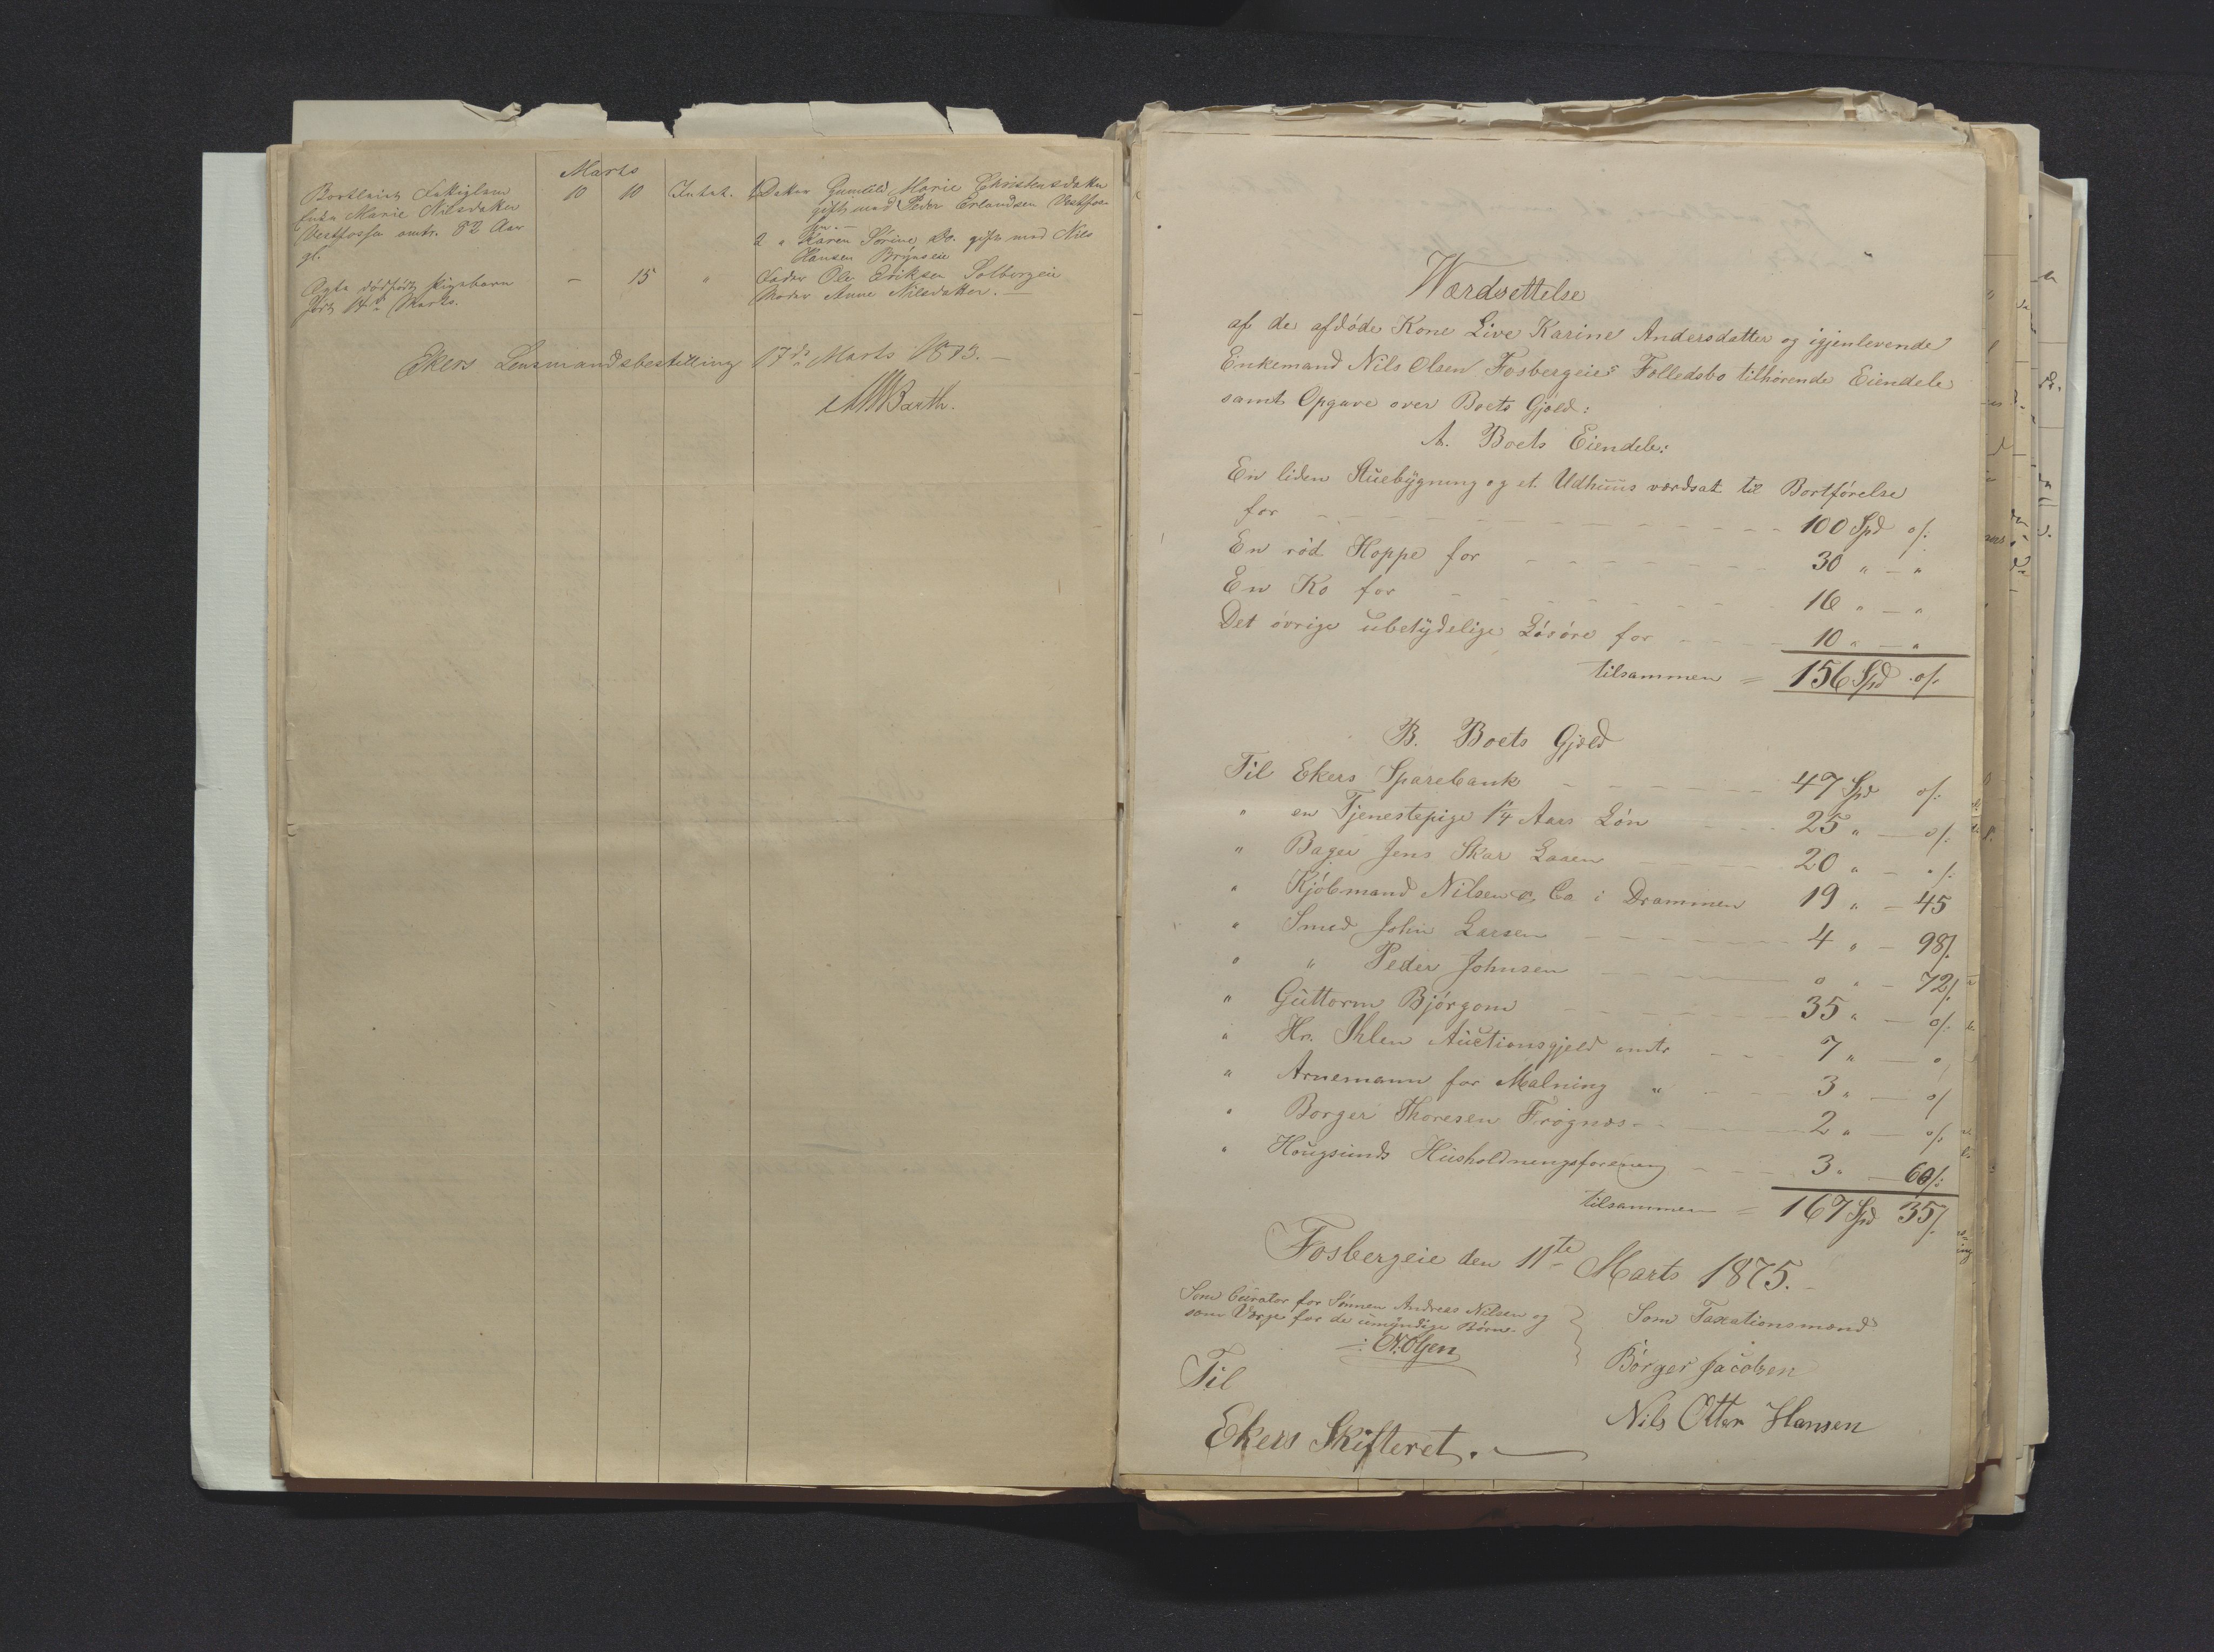 Marts
10 10 Intet. 1, Datter Gunhild Marie Christensdatter
enke Marie Nilsdatter gift med Peder Erlandsen Vestfos-
Vestfossen omtr. 82 Aar
gl. 2 " Karen Sørine Do. gift med Nils
Hansen Brynseie
Ægte dødfødt Pigebarn — 15 " Fader Ole Eriksen Solbergeie
født 14de Marts. Moder Anne Nilsdatter. —
Ekers Lensmandsbestilling 17de Marts 1875. —
Barth.
Værdsettelse
af de afdøde Kone Live Karine Andersdatter og igjenlevende
Enkemand Nils Olsen Fosbergeies Folledsbo tilhørende Eiendele
samt Opgave over Boets Gjæld:
A. Boets Eiendele:
En liden Stuebygning og et Udhuus værdsat til Bortførelse
for 100 Spd o/:
En rød Hoppe for 30 " — "
En Ko for 16 " — "
Det øvrige ubetydelige Løsøre for 10 " — "
tilsammen = 156 Spd o/:
B. Boets Gjæld
Til Ekers Sparebank 47 Spd o/:
" en Tjenestepige 1 1/4 Aars Løn 25 " — o/:
" Bager Jens Skar Laasen 20 " — o/:
" Kjøbmand Nilsen & Co i Drammen 19 " — 45
" Smed John Larsen 4 " — 98/:
" " Peder Johnsen " " — 72/:
" Guttorm Bjørgom 35 " — o/:
" Hr. Ihlen Auctionsgjeld omtr 7 " — "
" Arnemann for Malning " 3 " — o/
" Borger Thoresen Frognæs 2 " — o/:
" Hougsunds Husholdningsforening 3 " — 60/:
tilsammen = 167 Spd 35/:
Fosbergeie den 11te Marts 1875.
Som Curator for Sønnen Andreas Nilsen og
som Værge for de umyndige Børn.
N. Olsen
Som Taxationsmænd
Børger Jacobsen
Nils Otter Hansen
Til
Ekers Skifteret.